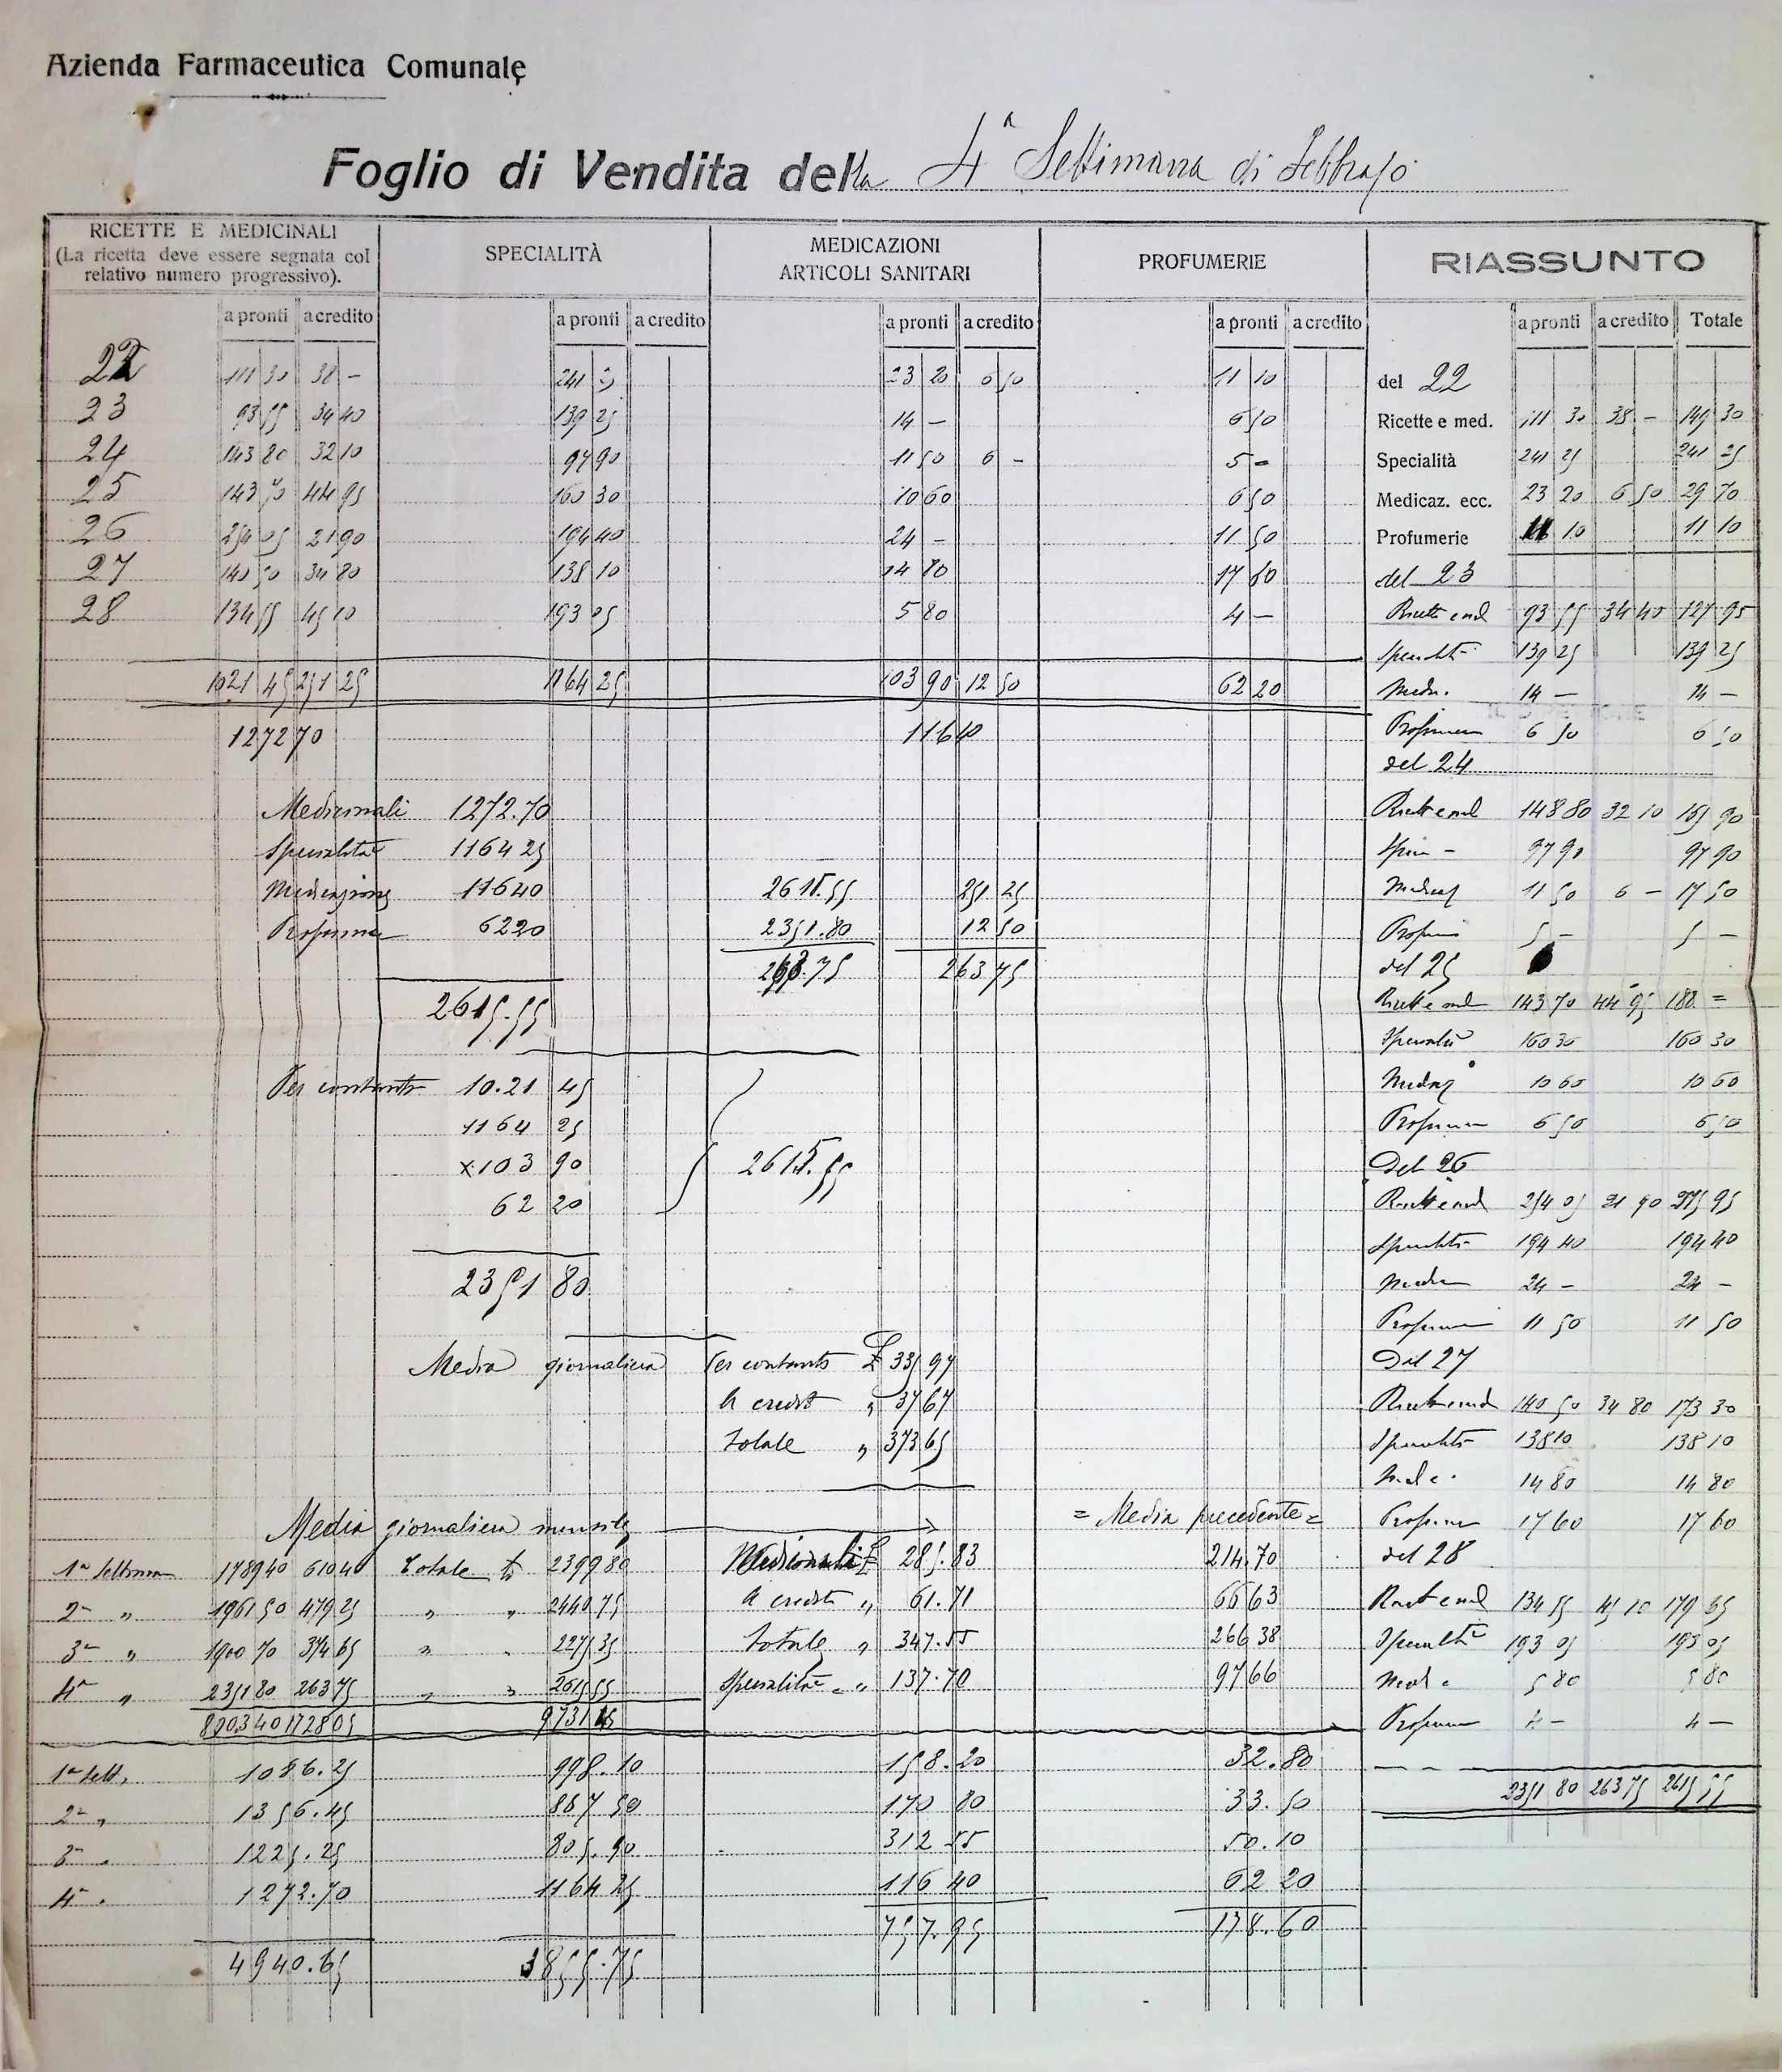 Azienda Farmaceutica Comunale
Foglio di Vendita della 4ª Settimana di Febbrajo
RICETTE E MEDICINALI
(La ricetta deve essere segnata col
relativo numero progressivo).
SPECIALITÀ
MEDICAZIONI
ARTICOLI SANITARI
PROFUMERIE
RIASSUNTO
a pronti a credito a pronti a credito a pronti a credito a pronti a credito a pronti a credito Totale
22 111 30 38 - 241 25 23 20 6 50 11 10
23 93 55 34 40 139 25 14 - 6 50
24 143 80 32 10 97 90 11 50 6 - 5 =
25 143 70 44 95 160 30 10 60 6 50
26 254 05 21 90 194 40 24 - 11 50
27 140 50 34 80 138 10 14 80 17 60
28 134 55 45 10 193 05 5 80 4 -
1021 45 251 25 1164 25 103 90 12 50 62 20
1272 70 116 40
Medicinali 1272.70
Specialità 1164 25
Medicazione 116 40
Profumerie 62 20
2615.55
2615.55 251 25
2351.80 12 50
263.75 263 75
Per contanti 10.21 45
1164 25
x 103 90
62 20
2615.55
2351 80
Media giornaliera Per contanti £ 335 97
A credito " 37 67
Totale " 373 65
Media giornaliera mensile = Media precedente =
1ª Settimana 1789 40 610 40 Totale £ 2399 80 Medicinali £ 285.83 214.70
2ª " 1961 50 479 25 " " 2440 75 A credito " 61.71 66 63
3ª " 1900 70 374 65 " " 2275 35 Totale " 347.55 266 38
4ª " 2351 80 263 75 " " 2615 55 Specialità = " 137.70 97 66
8003 40 1728 05 9731 45
1ª Sett. 1086.25 998.10 158.20 32.80
2ª " 1356.45 867 50 170 80 33.50
3ª " 1225.25 805.90 312 55 50.10
4ª " 1272.70 1164 25 116 40 62 20
4940.65 3855.75 757.95 178.60
del 22
Ricette e med. 111 30 38 - 149 30
Specialità 241 25 241 25
Medicaz. ecc. 23 20 6 50 29 70
Profumerie 11 10 11 10
del 23
Ricett e med 93 55 34 40 127 95
Specialità 139 25 139 25
Medic. 14 - 14 -
Profumerie 6 50 6 50
del 24
Ricett e med 148 80 32 10 165 90
Spec - 97 90 97 90
Medicaz 11 50 6 - 17 50
Profum 5 - 5 -
del 25
Ricett e med 143 70 44 95 188 =
Specialità 160 30 160 30
Medicaz 10 60 10 60
Profumer 6 50 6 50
Del 26
Ricett e med 254 05 21 90 275 95
Specialità 194 40 194 40
Medic 24 - 24 -
Profumer 11 50 11 50
Del 27
Ricett e med 140 50 34 80 173 30
Specialità 138 10 138 10
Medic. 14 80 14 80
Profumer 17 60 17 60
del 28
Ricett e med 134 55 45 10 179 65
Specialità 193 05 193 05
Medic 5 80 5 80
Profumer 4 - 4 -
2351 80 263 75 2615 55